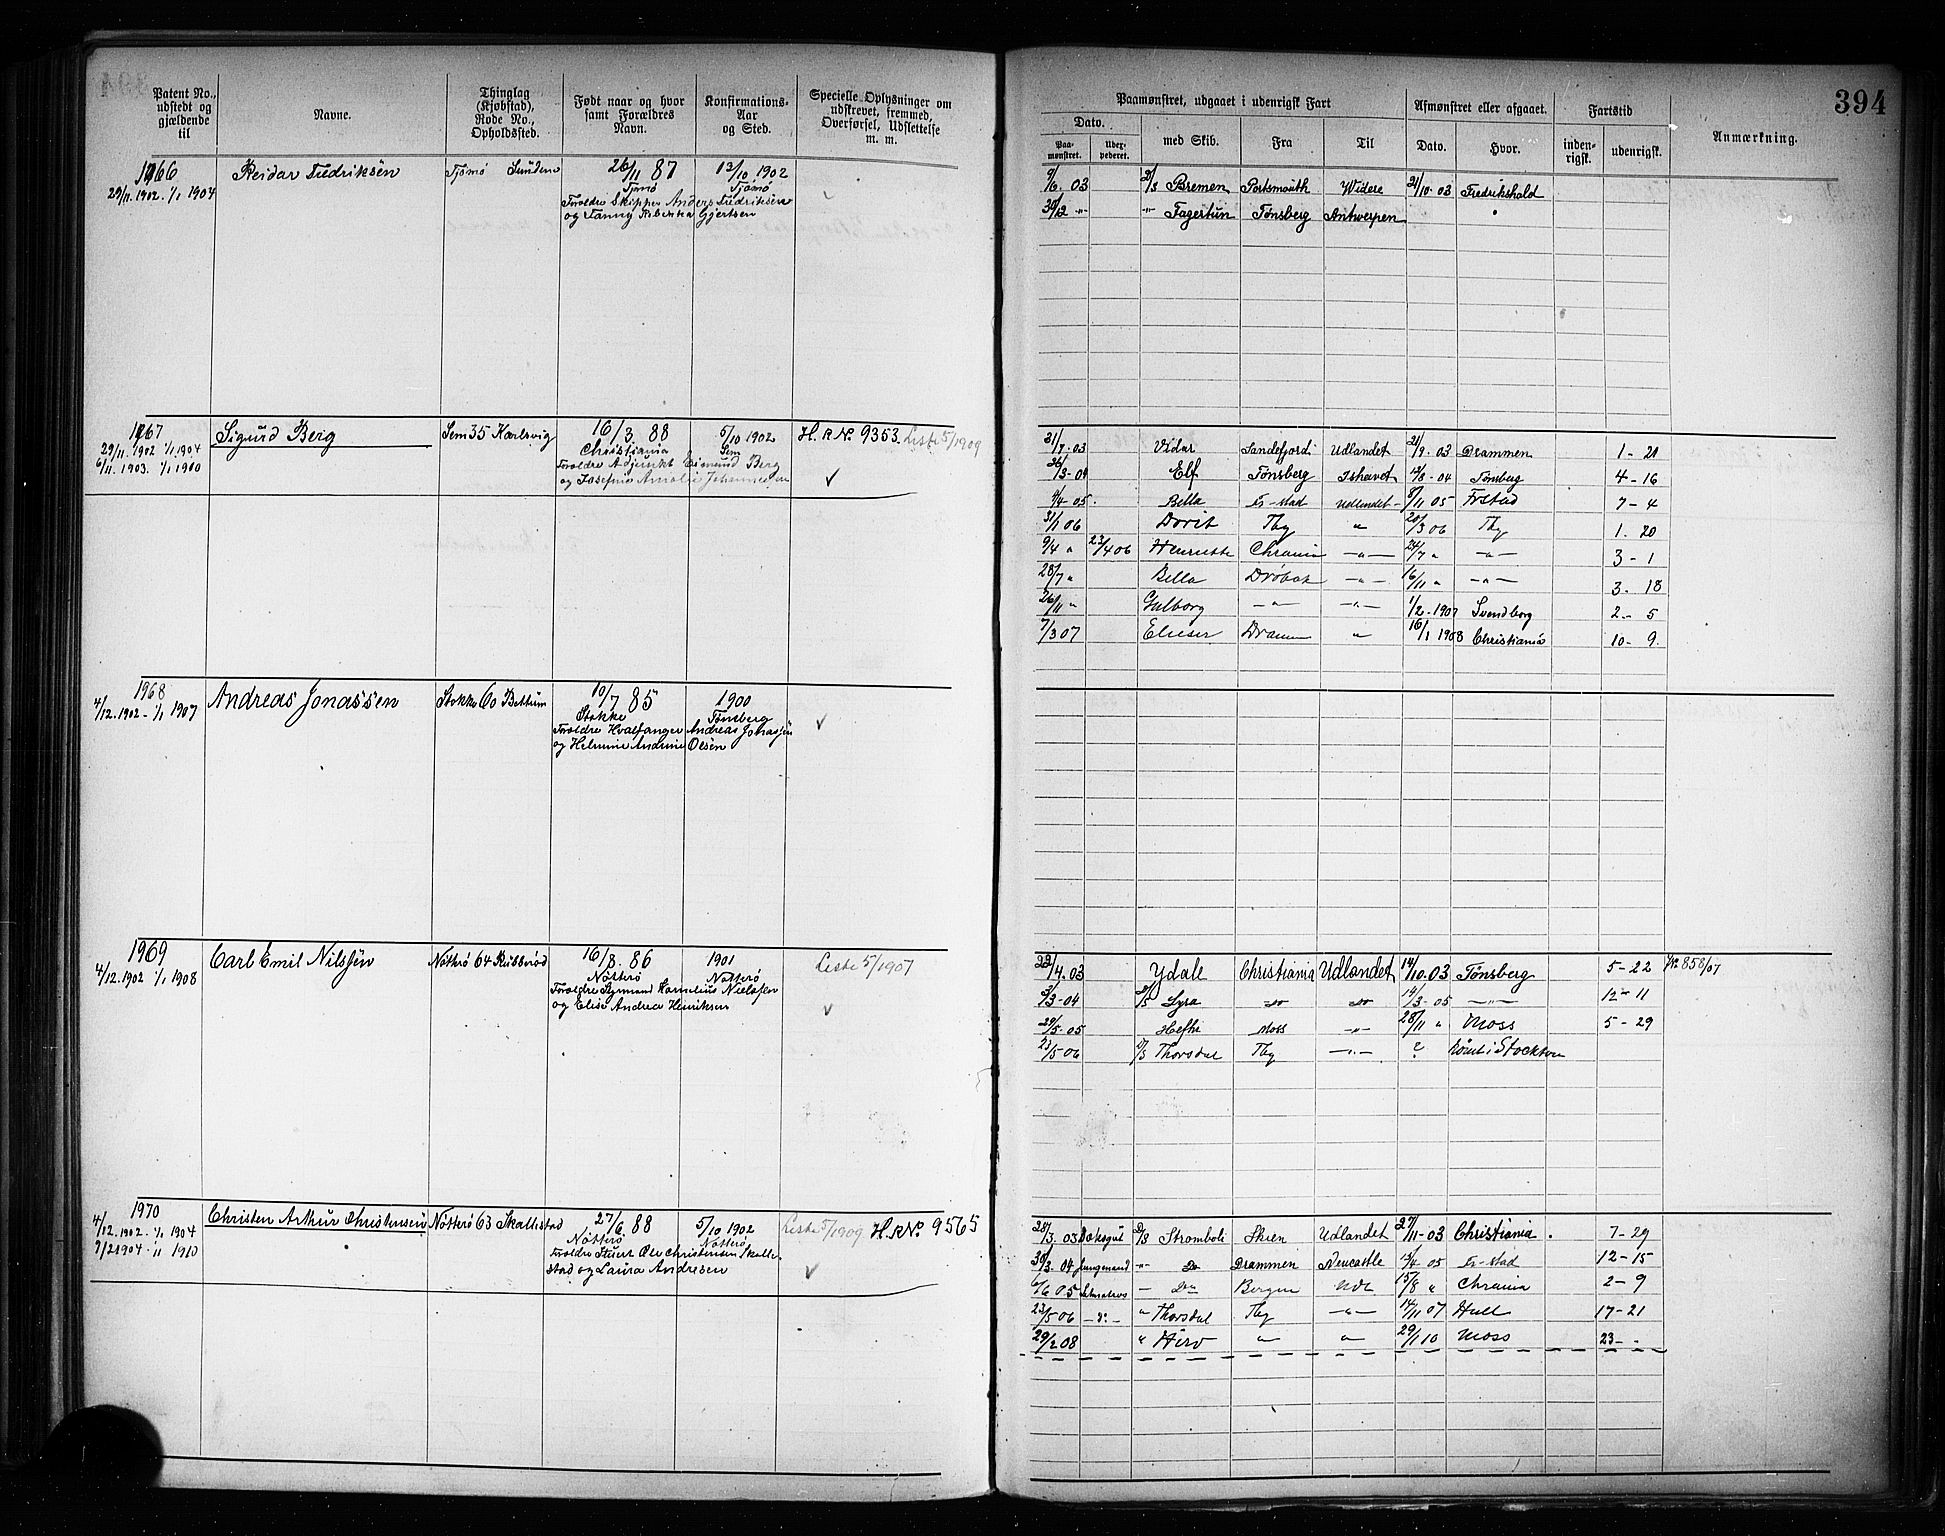 394
Patent No., udstedt og gjældende til
Navne.
Thinglag (Kjøbstad), Rode No., Opholdssted.
Født naar og hvor samt Forældres Navn.
Konfirmations-Aar og Sted.
Specielle Oplysninger om udskrevet, fremmed, Overførsel, Udslettelse m. m.
Paamønstret, udgaaet i udenrigsk Fart
Afmønstret eller afgaaet.
Fartstid
Anmærkning.
Dato.
Paa-mønstret.
med Skib.
Fra
Til
Dato.
Hvor.
inden-rigsk.
udenrigsk.
1966 Reidar Fredriksen Tjømø 26/11 87 13/10 1902
29/11.1902. 1/1 1904 Tjømø Tjømø
Foreldre Skipper Anders Fredriksen
og Fanny Gjertsen
9/6. 03 Bremen Portsmouth Widere 21/10. 03 Fredrikshald
30/12 " " Fagertun Tønsberg Antwerpen
1967 Sigurd Berg Sem 35 Karlsvig 16/3. 88 5/10 1902 H. R No. 9353. Liste 5/1909
29/11. 1902 1/1 1904 Christiania Sem
6/11. 1903. 1/1 1910 Foreldre Adjunkt Edmund Berg
og Josefine Amalie Johannesen
21/7. 03 Vidar Sandefjord Udlandet 21/9. 03 Drammen 1 - 20
26/3-04 Elf Tønsberg Ishavet 12/8-04 Tønsberg 4 - 16
4/4 05. Bella Fr-stad Udlandet 8/11 05 Frstad 7 - 4
31/1 06 Dorit Tbg " 20/3 06 Tbg 1. 20
9/4 " 23/4 06 Henriette Chrania -"- 24/7 " -"- 3 - 1
28/7 " Bella Drøbak -"- 16/11 " -"- 3. 18
26/11 " Gulborg -"- -"- 1/2. 1907 Svendborg 2. - 5
7/3 07 Elieser Dramm " 16/1 1908 Christiania 10 - 9.
1968 Andreas Jonassen Stokke 60 Bettum 10/7 85 1900
4/12. 1902 - 1/1 1907 Stokke Tønsberg
Foreldre Hvalfanger Andreas Jonassen
og Helmine Andrine Olsen
1969 Carl Emil Nilssen Nøtterø 64 16/8. 86 1901 Liste 5/1907
4/12. 1902 1/1 1908 Nøtterø Nøtterø
Foreldre Styrmand Kornelius Nielssen
og Elise Andrea Henriksen
22/4. 03 Ydale Christiania Udlandet 14/10. 03 Tønsberg 5 - 22 No 858/07
3/3-04 Lyra do do 14/3- 05 -"- 12 - 11
29/5 05 Hefhi Moss -"- 28/11 " Moss 5 - 29
23/5 06 Thorsdal Tbg -"- ? Rømt i Stockton
1970 Christen Arthur Christensen Nøtterø 63 Skallestad 27/6 88 5/10 1902 Liste 5/1909 H. R No. 9565
4/12. 1902. 1/1 1904 Nøtterø Nøtterø
9/2 1904 - 1/1 1910 Foreldre Stuert Ole Christensen Skalle-
stad og Laura Andresen
28/3. 03 Stromboli Skien Udlandet 27/11-03 Christiania. 7 - 29
30/3. 04 Jungmand " Do Drammen Newcastle 13/4 05 Fr-stad 12 - 15
6/6 05 Letmatros - Do Bergen Udl 15/8 " Chrania 2 - 9
23/5 06 - Do - " Thorsdal Tbg -"- 14/11 07 Hull 17 - 21
29/2 08 " Hero " " 29/1 10 Moss 23 - -